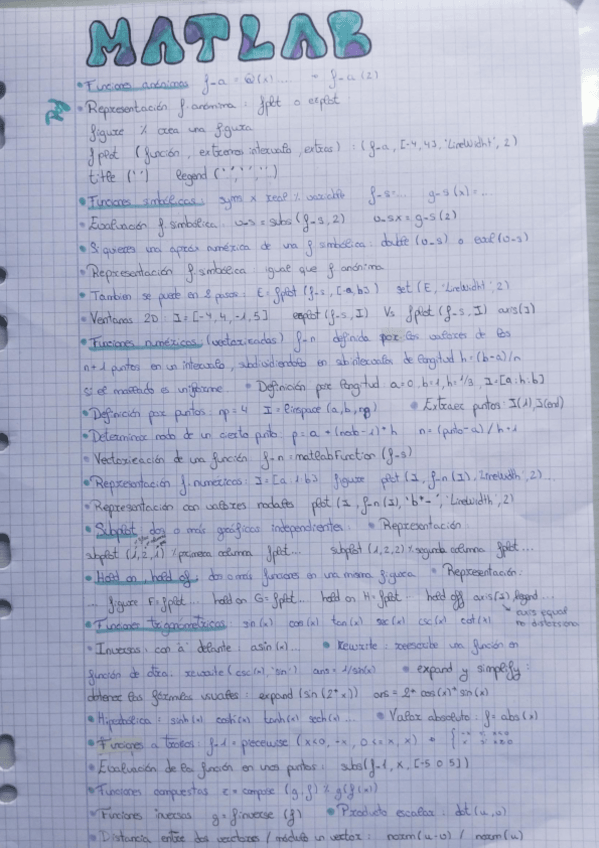 MATLAB
• Funciones anónimas f-a = @(x)... → f-a (2)
• Representación f. anónima: fplot o ezplot
figure % crea una figura
fplot (función, extremos intervalo, extras): (f-a, [-4,4], 'LineWidht', 2)
title ('') legend ('','','')
• Funciones simbólicas: sym x real % variable f-s=... g-s(x)=...
• Evaluación f. simbólica: v-s = subs(f-s, 2) v-sx = g-s(2)
• Si quieres una aprox numérica de una f. simbólica: double (v-s) o eval(v-s)
• Representación f. simbólica: igual que f. anónima
• También se puede en 2 pasos: E = fplot (f-s, [-a,b]) set (E, 'LineWidht', 2)
• Ventanas 2D: I = [-4, 4, -1, 5] ezplot (f-s, I) Vs fplot (f-s, I) axis(I)
• Funciones numéricas (vectorizadas) f-n definida por los valores de los
n+1 puntos en un intervalo, subdividiéndolo en subintervalos de longitud h=(b-a)/n
si el mallado es uniforme. • Definición por longitud: a=0, b=1, h=1/3, I=[a:h:b]
• Definición por puntos: np=4 I= linspace (a,b,np) • Extraer puntos: I(1), I(end)
• Determinar nodo de un cierto punto: p = a + (nodo-1)*h n = (punto-a)/h+1
• Vectorización de una función f-n = matlabFunction (f-s)
• Representación f. numéricas: I=[a:h:b] figure plot (I, f-n(I), 'LineWidth', 2)...
• Representación con valores nodales plot (I, f-n(I), 'b*-', 'LineWidth', 2)
• Subplot: dos o más gráficas independientes. • Representación:
subplot (1,2,1) % primera columna fplot... subplot (1,2,2) % segunda columna fplot...
• Hold on, hold off: dos o más funciones en una misma figura • Representación:
... figure F=fplot... hold on G=fplot... hold on H=fplot... hold off axis(I) legend...
axis equal
no distorsiona
• Funciones trigonométricas: sin(x) cos(x) tan(x) sec(x) csc(x) cot(x)
• Inversas: con 'a' delante asin(x)... • Rewrite: reescribe una función en
función de otra. rewrite (csc(x), 'sin') ans = 1/sin(x) • expand y simplify:
obtener las fórmulas usuales: expand (sin(2*x)) ans = 2*cos(x)*sin(x)
• Hiperbólica: sinh(x) cosh(x) tanh(x) sech(x)... • Valor absoluto: f= abs(x)
• Funciones a trozos: f-1 = piecewise (x<0, -x, 0<=x, x)
• Evaluación de la función en unos puntos: subs(f-1, x, [-5 0 5])
• Funciones compuestas c = compose (g, f) % g(f(x))
• Funciones inversas g = finverse (f) • Producto escalar: dot(u,v)
• Distancia entre dos vectores / módulo un vector: norm(u-v) / norm(u)